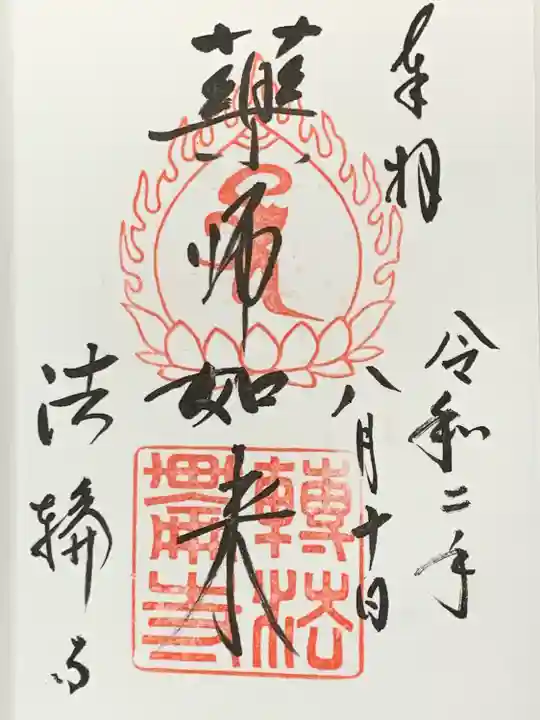 奉拝
令和二年
八月十日
薬師如来
法輪寺
轉法
輪寺